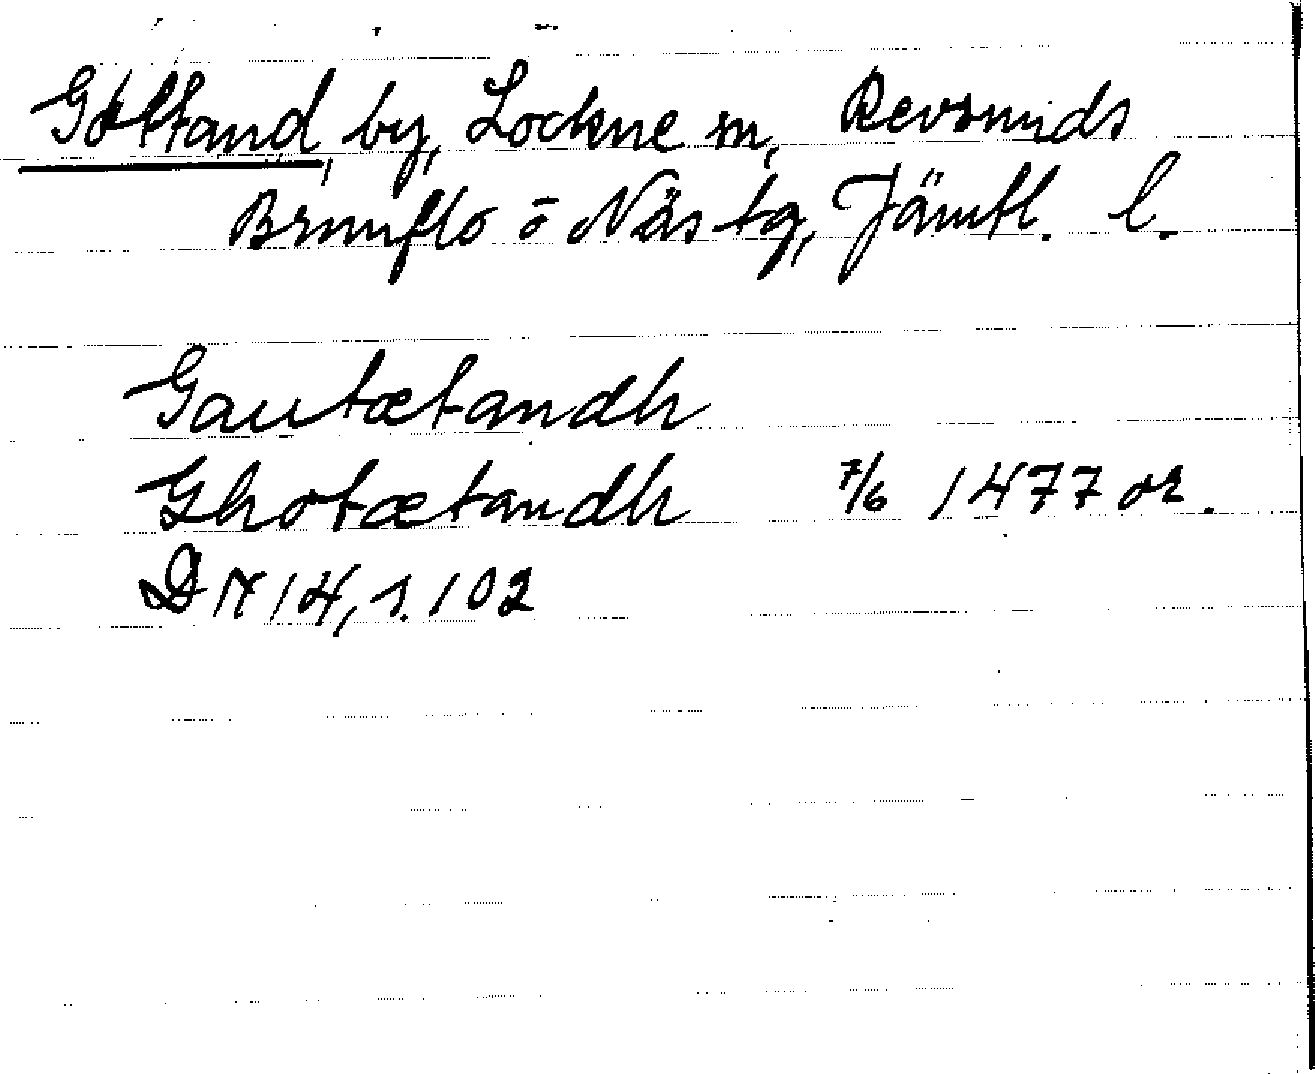 Gottand, by, Lockne sn, Revsunds
Brunflo o Näs tg, Jämtl. l.
Gautætandh
Ghotætandh 7/6 1477 or.
DN 14, s. 102